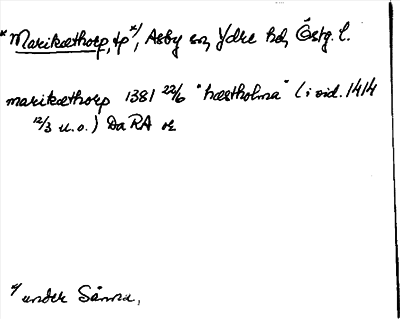 * Marikæthorp, tp *), Asby sn, Ydre hd, Östg. l.
marikæthorp 1381 22/6 "hæstholma" (i vid. 1414
12/3 u.o.) Da RA or
*) under Sänna,